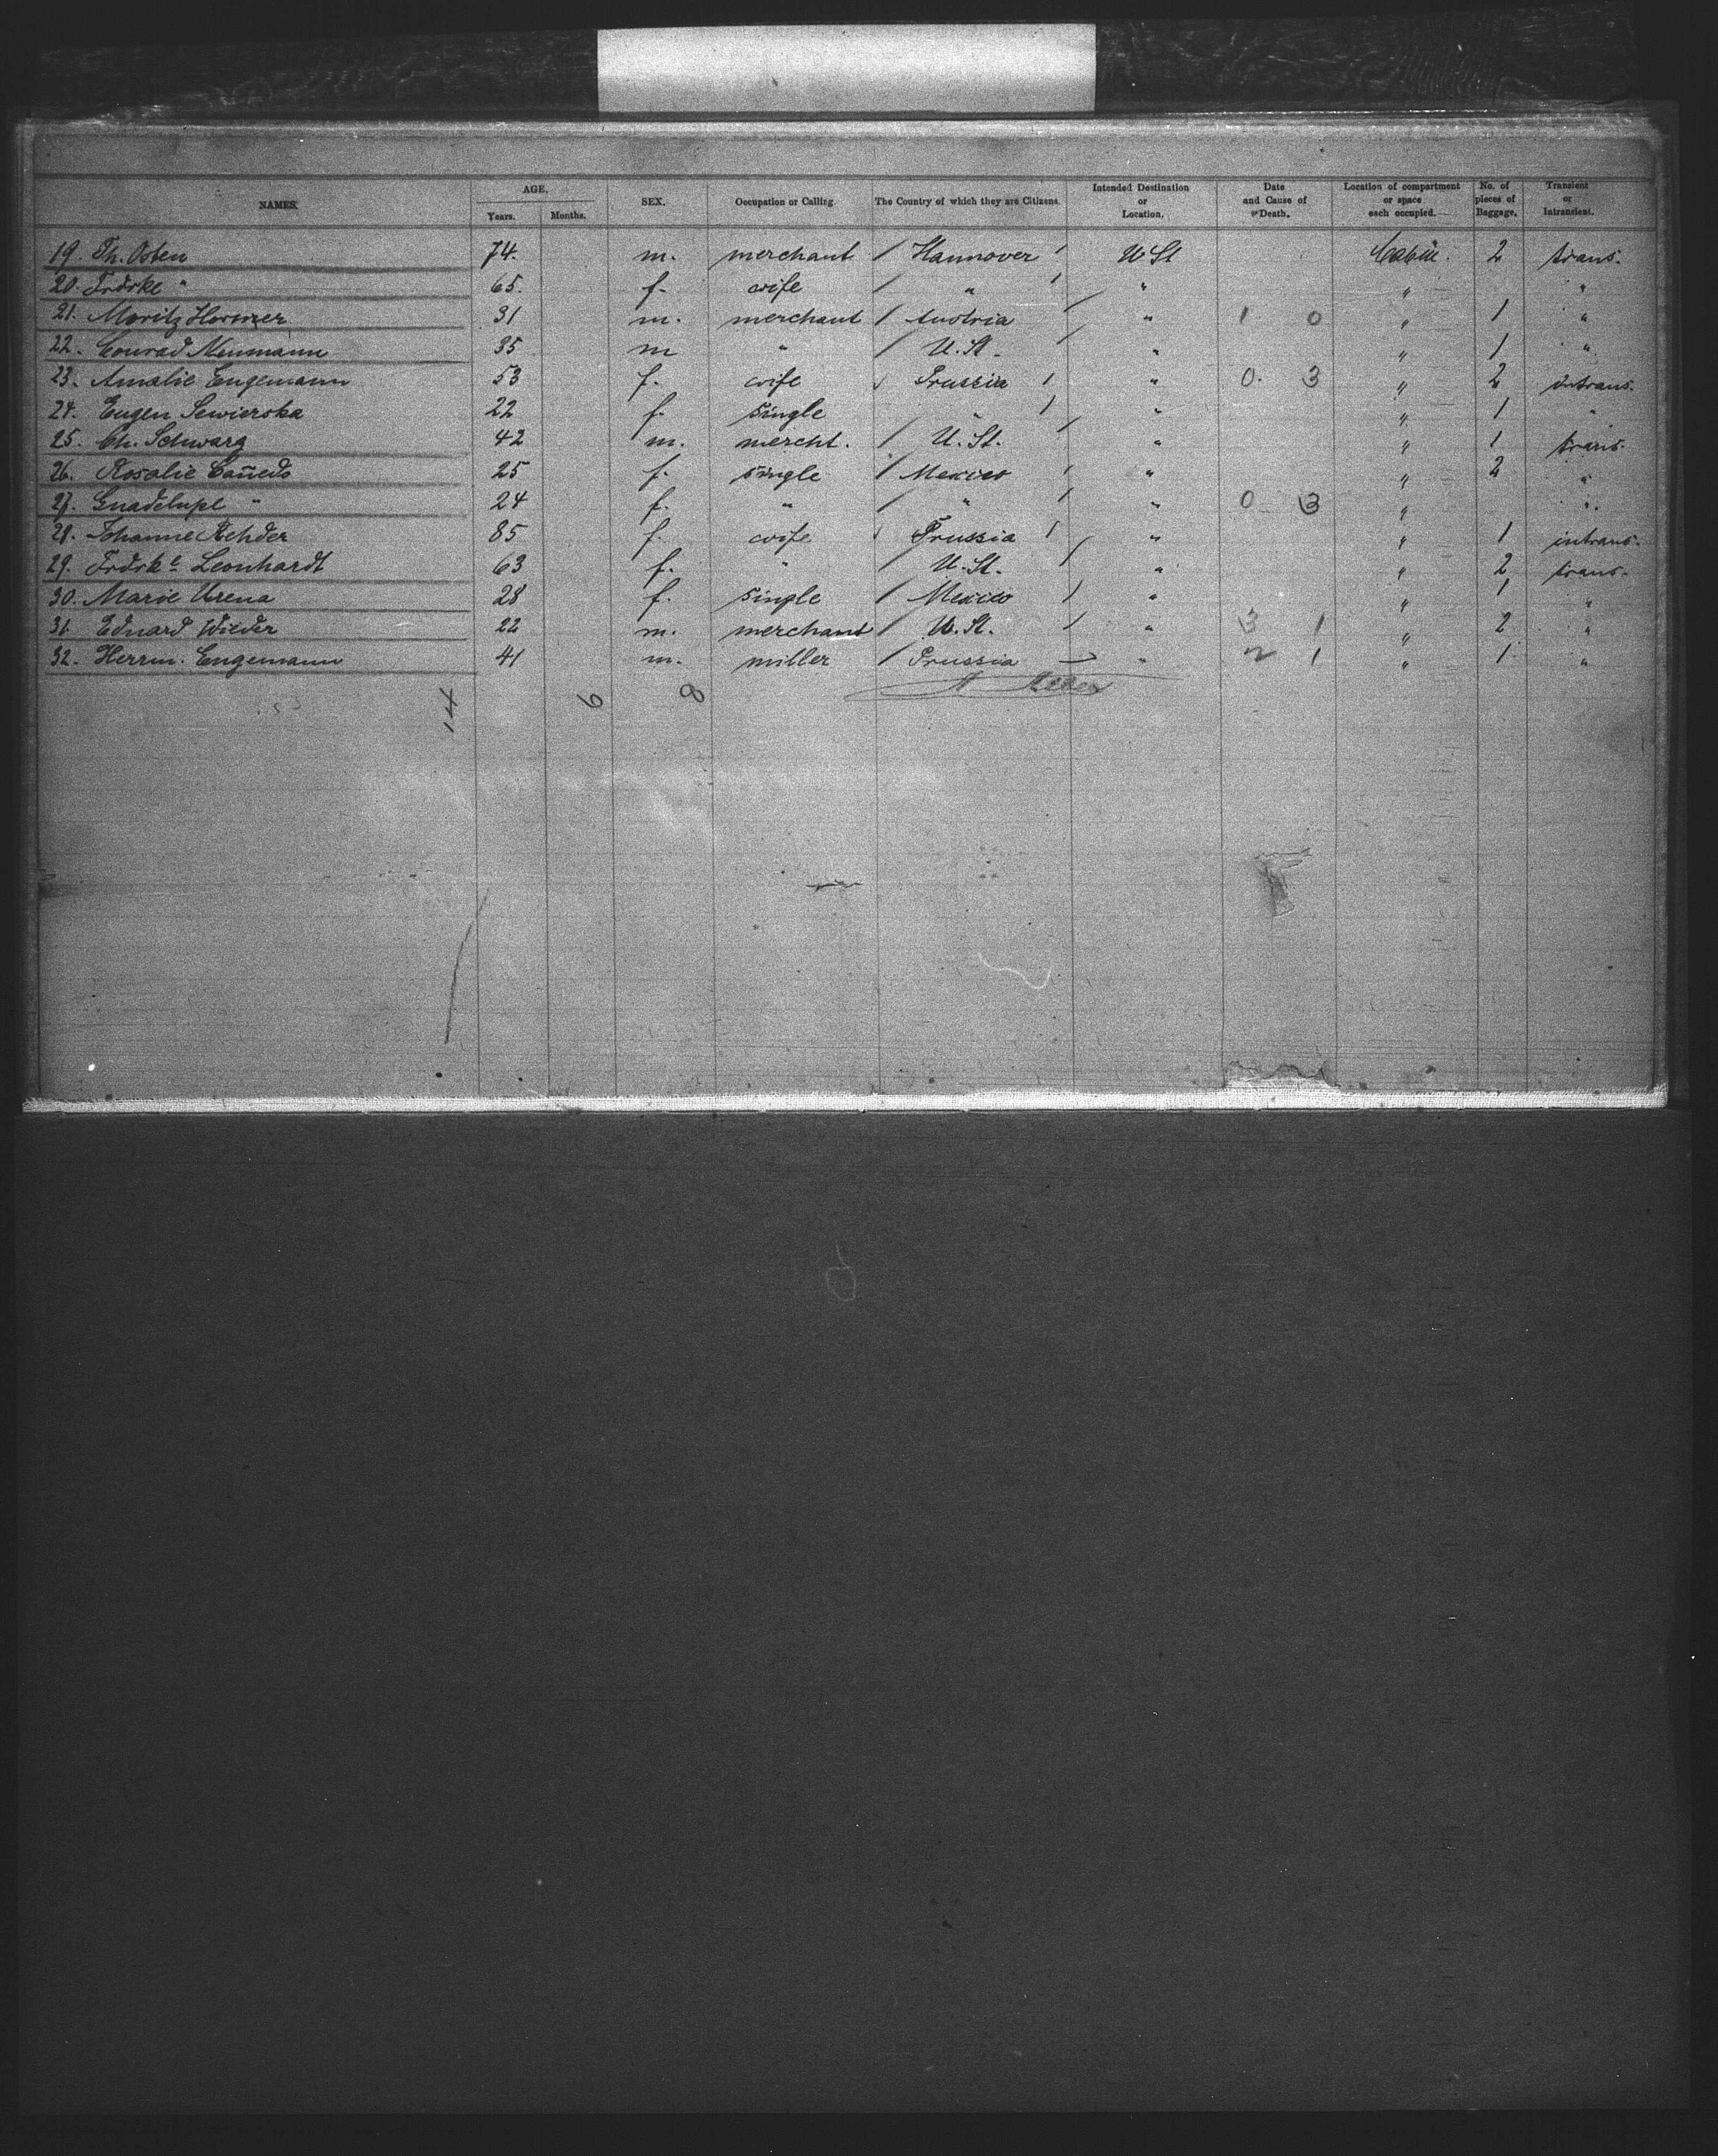 NAMES. AGE. Years. Months. SEX. Occupation or Calling. The Country of which they are Citizens. Intended Destination or Location. Date and Cause of Death. Location of compartment or space each occupied. No. of pieces of Baggage. Transient or Intransient.
19. Th. Osten 74. m. merchant / Hannover / U St Cabin. 2 trans.
20. Frdrke " 65. f. wife / " / " " "
21. Moritz 31 m. merchant / Austria / " 1 0 " 1 "
22. Conrad Neumann 35 m " / U. St. / " " 1 "
23. Amalie Engemann 53 f. wife / Prussia / " 0. 3 " 2 intrans.
24. Eugen Sewierska 22 f. single " / " " 1 "
25. Ch. Schwarz 42 m. mercht. / U. St. / " " 1 trans.
26. Rosalie Cañedo 25 f. single / Mexico / " " 2 "
27. Guadelupe " 24 f. " / " / " 0 3 " "
28. Johanne Rehder 85 f. wife / Prussia / " " 1 intrans.
29. Frdrke Leonhardt 63 f. " / U. St. / " " 2 trans.
30. Marie Urena 28 f. single / Mexico / " " 1 "
31. Eduard Wieder 22 m. merchant / U. St. / " 3 1 " 2 "
32. Herrm. Engemann 41 m. miller / Prussia " 2 1 " 1 "
14 6 8